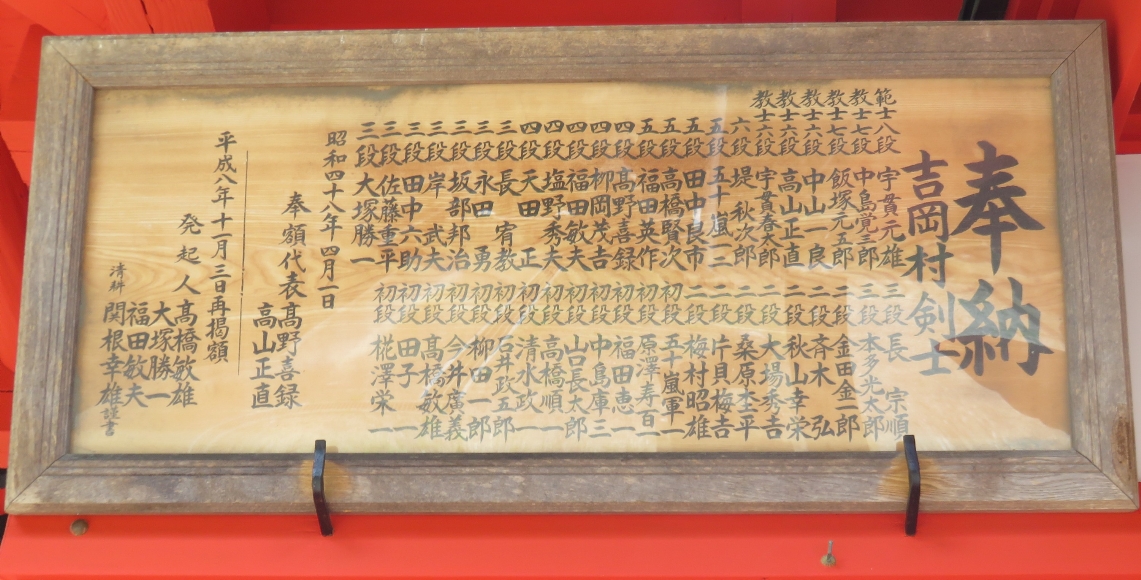 奉納
吉岡村剣士
範士八段 宇貫元雄
教士七段 中島覚三郎
教士七段 飯塚元五郎
教士六段 中山一良
教士六段 高山正直
教士六段 宇貫春太郎
六段 堤秋次郎
五段 五十嵐一二
五段 田中良市
五段 高橋賢次
五段 福田英作
四段 髙野喜録
四段 柳岡茂吉
四段 福田敏夫
四段 塩野秀夫
四段 天田 正
三段 長 宥教
三段 永田 勇
三段 坂部邦治
三段 岸 武夫
三段 田中六助
三段 佐藤重平
三段 大塚勝一
三段 長 宗順
三段 本多光太郎
二段 金田金一郎
二段 斉木 弘
二段 秋山幸栄
二段 大場秀吉
二段 桑原杢平
二段 片貝梅吉
二段 梅村昭雄
初段 五十嵐軍一
初段 原澤寿百二
初段 福田恵一
初段 中島庫三
初段 山口長太郎
初段 高橋順一
初段 清水政一
初段 石井政五郎
初段 柳田一郎
初段 今井廣義
初段 髙橋敏雄
初段 田子 一
初段 椛澤栄一
昭和四十八年 四月一日
奉額代表 髙野喜録
高山正直
平成八年十一月三日再掲額
発起人 髙橋敏雄
大塚勝一
福田敏夫
関根幸雄 謹書